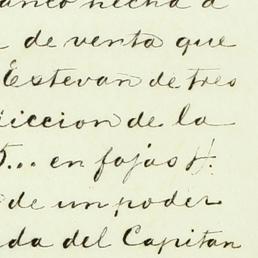 hecha a
de venta que
Estevan de tres
iiccion de la
5... en fojas 4.
de un poder
da del Capitan